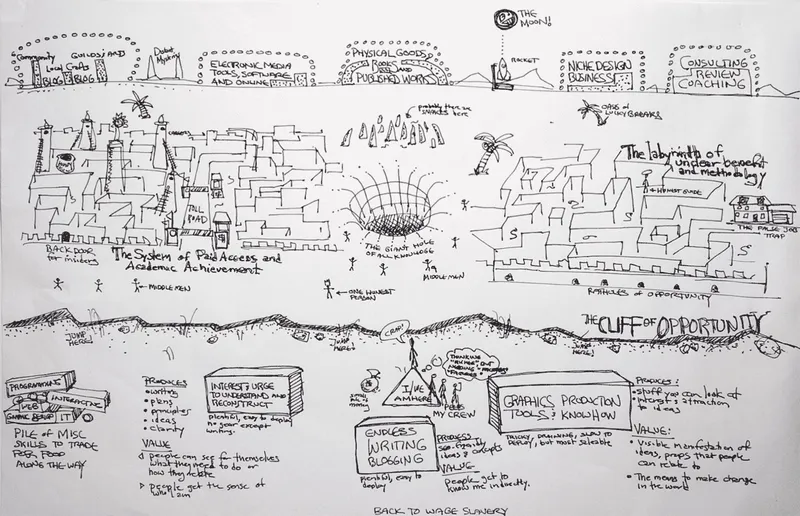 THE MOON!
Community
GUILDS AND
Local Crafts
BLOG
BLOG
Debate
Mystery
ELECTRONIC MEDIA
TOOLS, SOFTWARE
AND ONLINE
PHYSICAL GOODS
BOOKS
AND
PUBLISHED WORKS
ROCKET
NICHE DESIGN
BUSINESS
CONSULTING
REVIEW
COACHING
probably there are
here
OASIS of
LUCKY BREAKS
The labyrinth of
unclear benefit
and methodology
HONEST GUIDE
THE FALSE JOB
TRAP
TOLL
ROAD
BACK DOOR
for insiders
The System of Paid Access and
Academic Achievement
MIDDLEMEN
THE GIANT HOLE
OF ALL KNOWLEDGE
MIDDLEMEN
ONE HONEST
PERSON
RATHOLES of OPPORTUNITY
THE CLIFF OF OPPORTUNITY
JUMP
HERE!
JUMP
HERE!
JUMP
HERE!
CRAP!
I'VE
AM HERE
MY CREW
PROGRAMMING
WEB
INTERACTIVE
GRAPHIC DESIGN
IT
PILE of MISC
SKILLS TO TRADE
FOR FOOD
ALONG THE WAY
PRODUCES
• writing
• plans
• principles
• ideas
• clarity
VALUE
people can see for themselves
what they need to do or
how they relate
people get the sense of
who I am
INTEREST & URGE
TO UNDERSTAND AND
RECONSTRUCT
plentiful, easy to deploy
no gear except for
writing.
ENDLESS
WRITING
BLOGGING
plentiful, easy to
deploy
PRODUCES
ideas & concepts
VALUE
People get to
know me indirectly.
GRAPHICS PRODUCTION
TOOLS & KNOWHOW
TRICKY, DRAINING, SLOW TO
DEPLOY, but most saleable
PRODUCES:
• stuff you can look at
• interest & attraction
to ideas
VALUE:
• Visible manifestation of
ideas, props that people
can relate to
• The means to make change
in the world
BACK TO WAGE SLAVERY